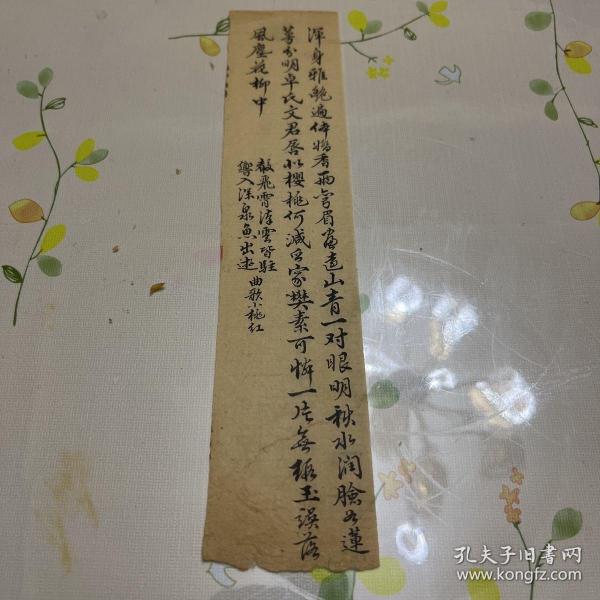 渾身雅艶遍体嬌香兩弯眉画遠山青一对眼明秋水润臉如蓮
萼分明卓氏文君唇似櫻桃何减白家樊素可憐一片無瑕玉误落
風塵花柳中
声飛霄浮雲皆駐
響入深泉魚出遊
曲歌小桃红
孔夫子旧书网
www.kongfz.com